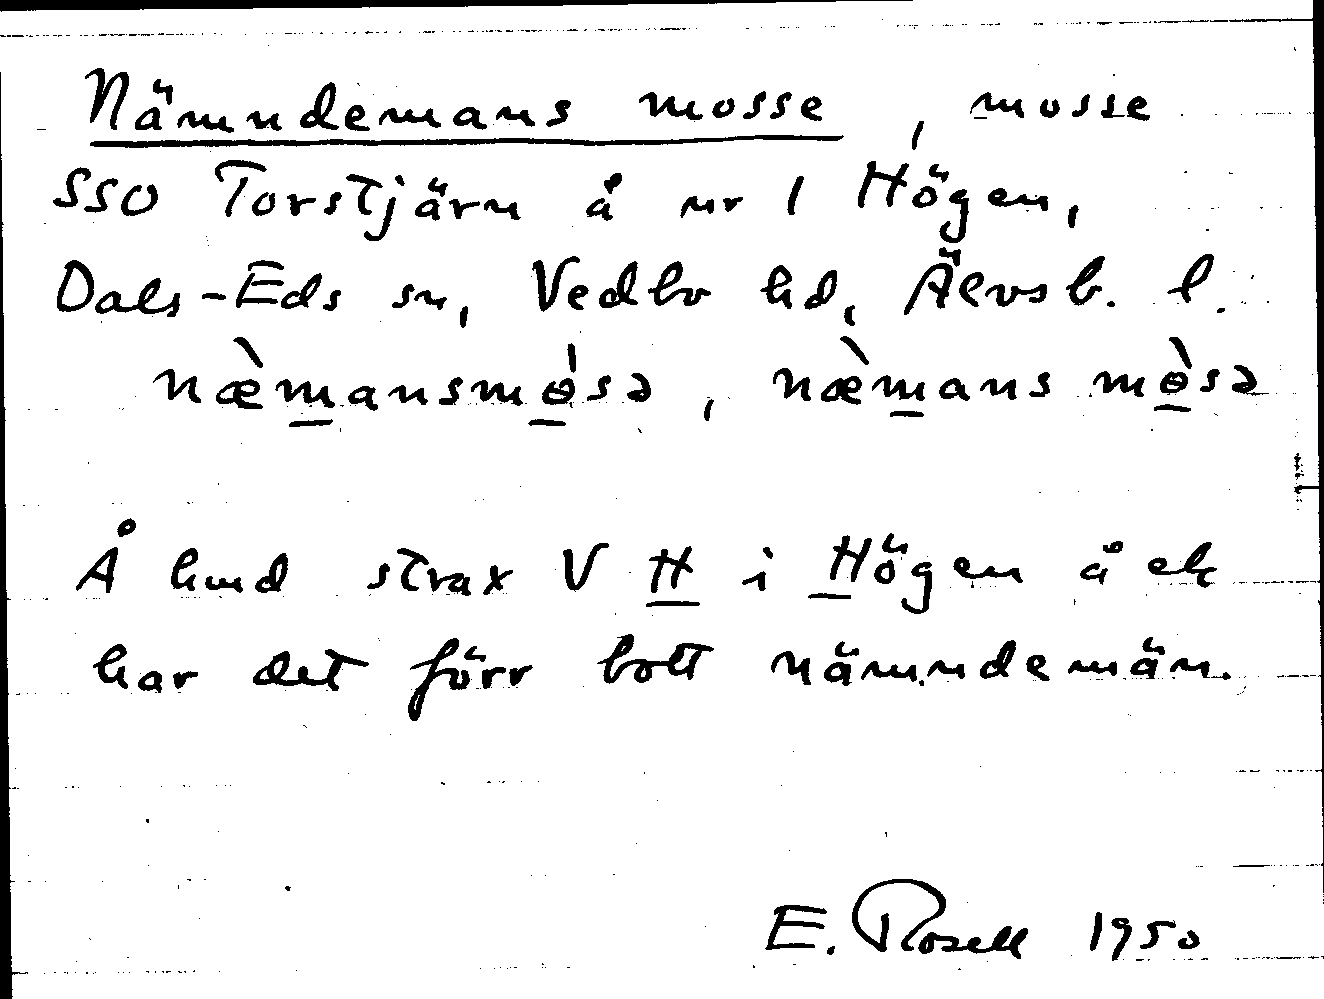 Nämndemans mosse, mosse
SSO Torstjärn å nr 1 Högen,
Dals-Eds sn, Vedbo hd, Älvsb. l.
næ̀mansmɵ́sə, næ̀mans mɵ̀sə
Å hmd strax V H i Högen å ek
har det förr bott nämndemän.
E. Rosell 1950